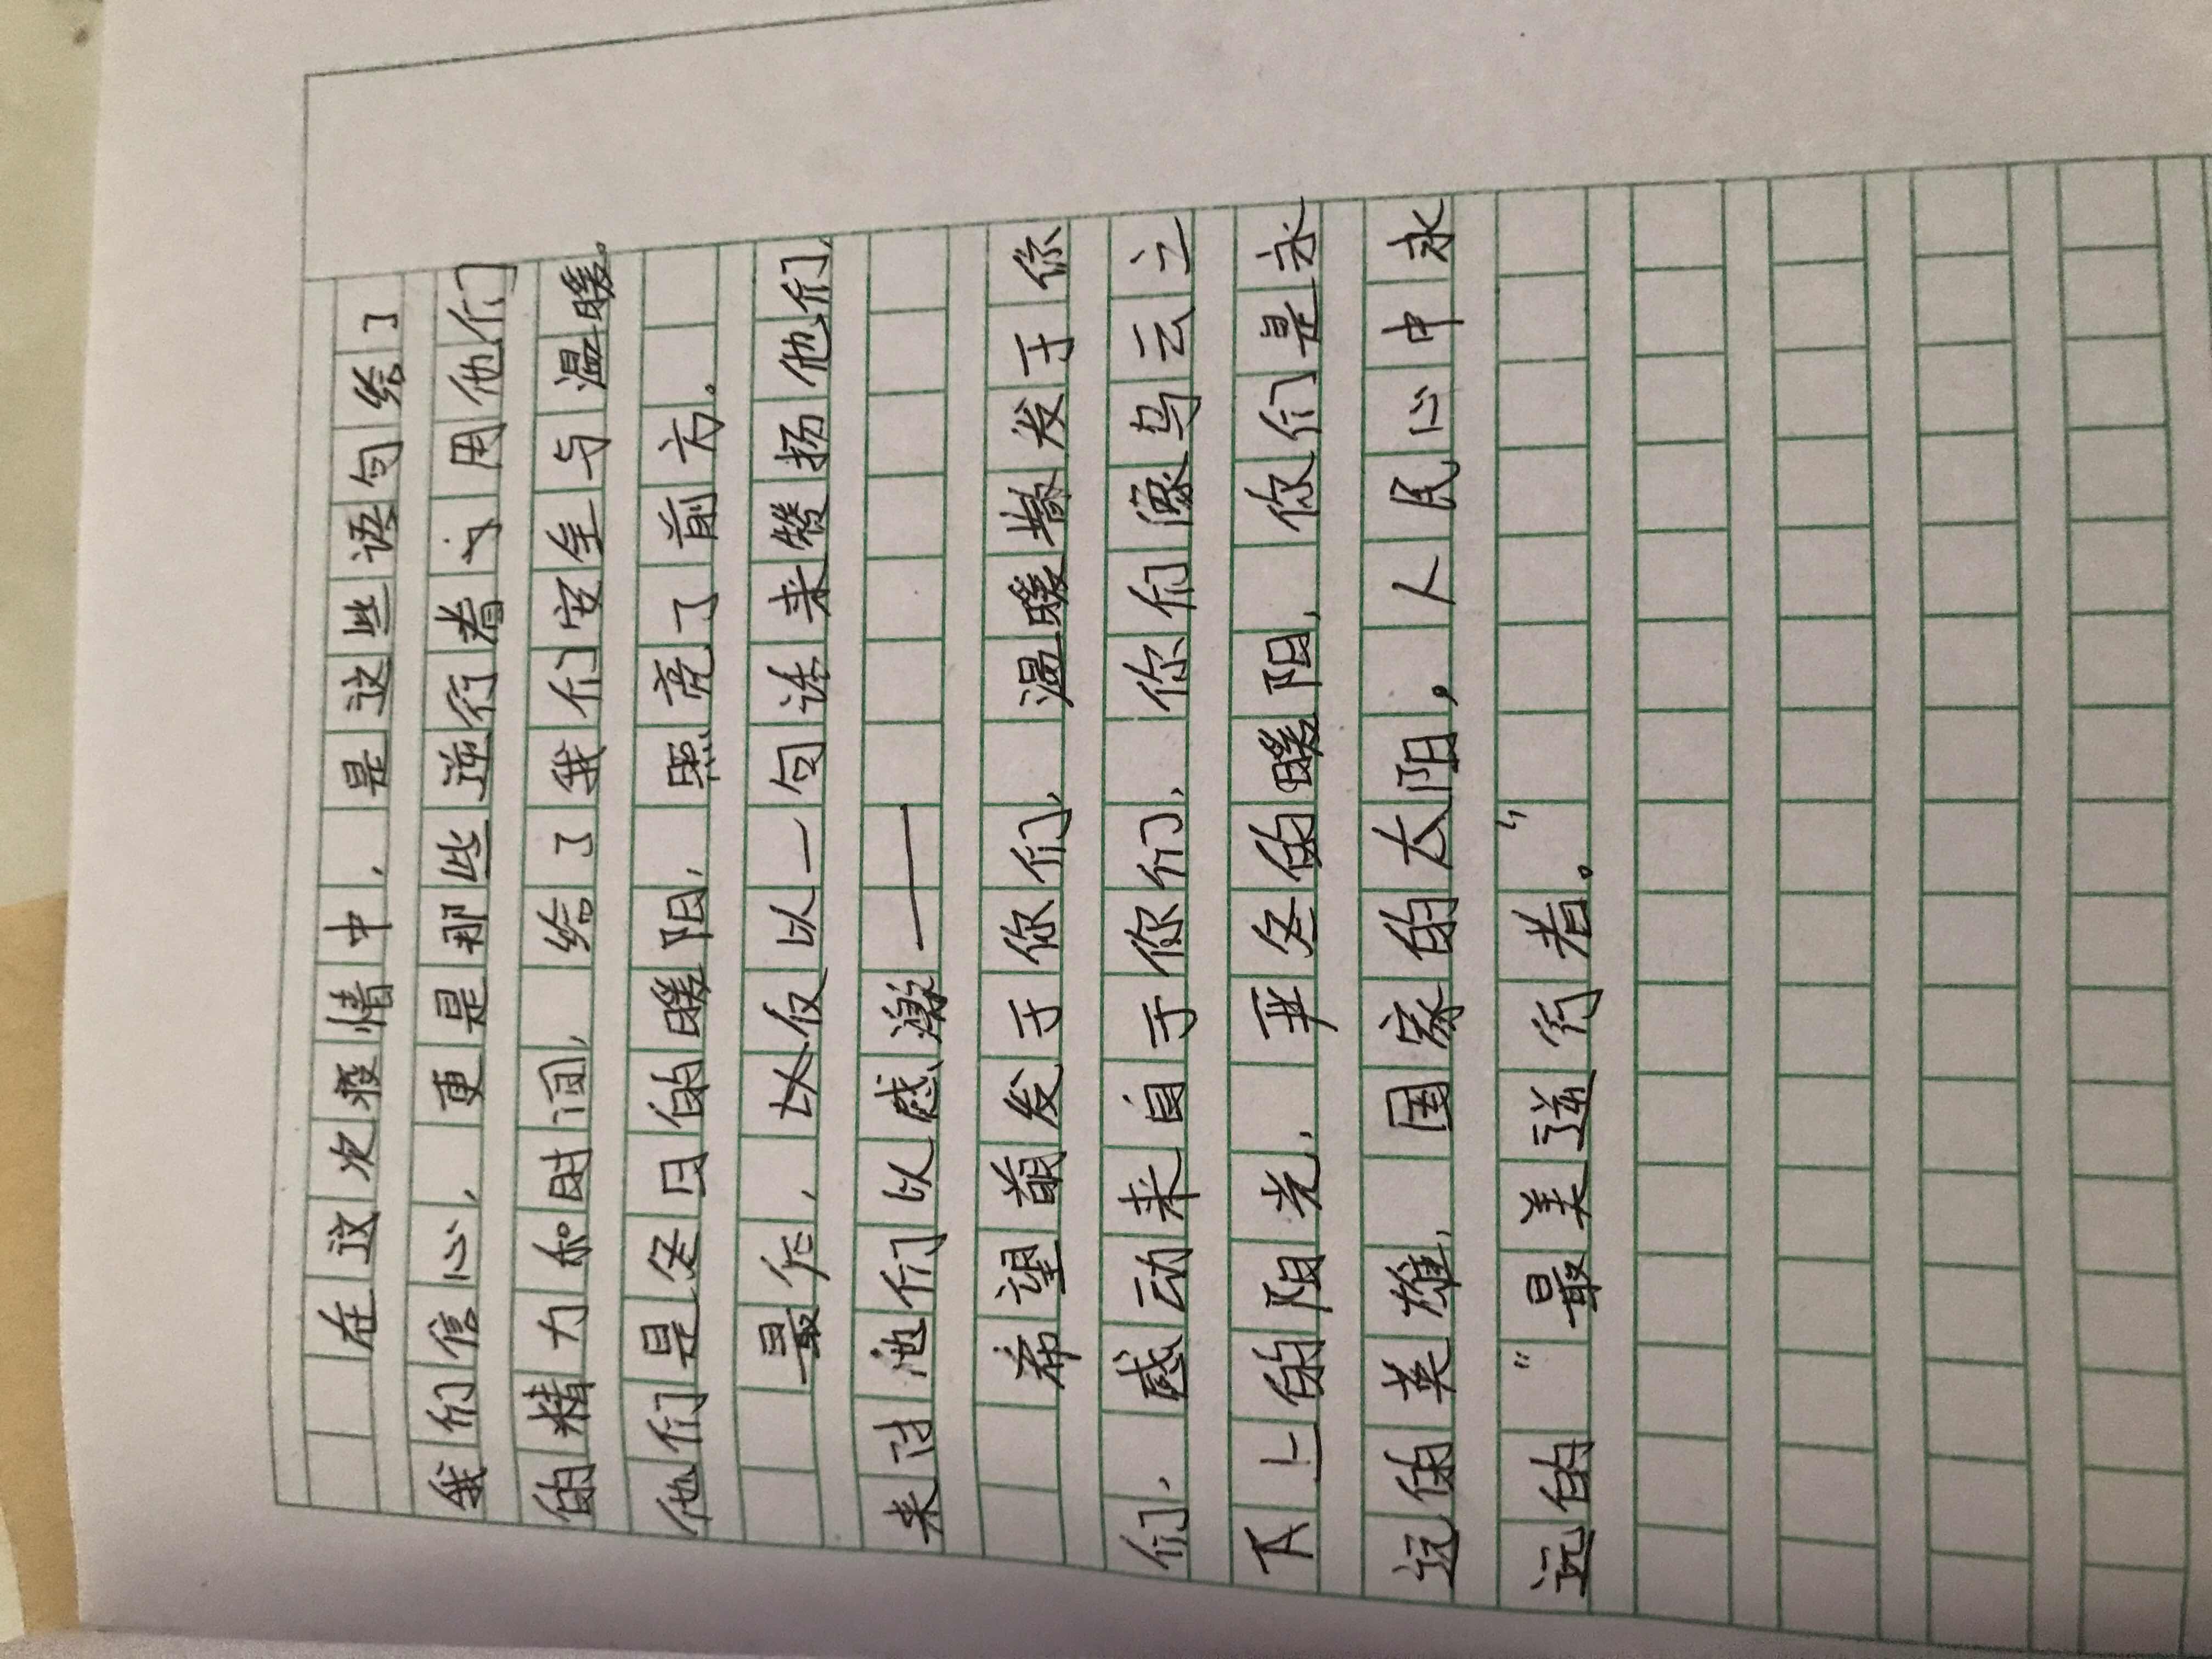 在这次疫情中，是这些语句给了
我们信心，更是那些逆行者们用他们
的精力和时间，给了我们安全与温暖。
他们是冬日的暖阳，照亮了前方。
最后，以仅以一句话来赞扬他们，
来对他们以感激——
希望萌发于你们，温暖散发于你
们，感动来自于你们，你们像乌云之
下上的阳光，严冬的暖阳，你们是永
远的英雄，国家的太阳，人民心中永
远的“最美逆行者。”